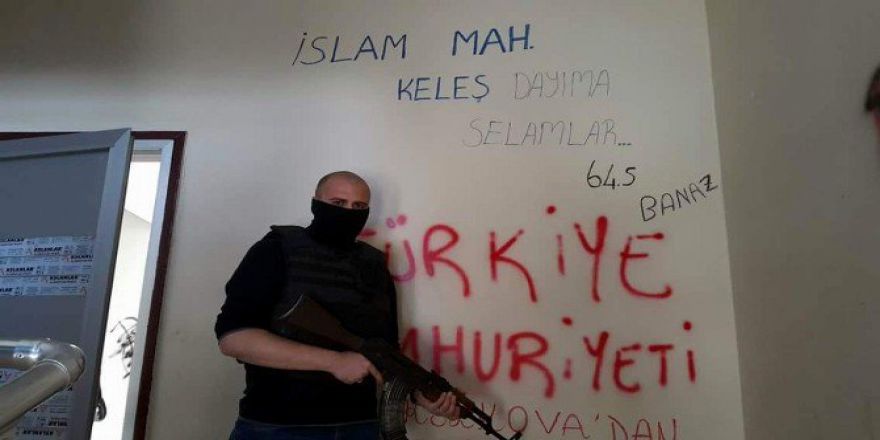 İSLAM MAH.
KELEŞ DAYIMA
SELAMLAR...
64.5
BANAZ
ÜRKİYE
MHURİYETİ
OVA'DAN